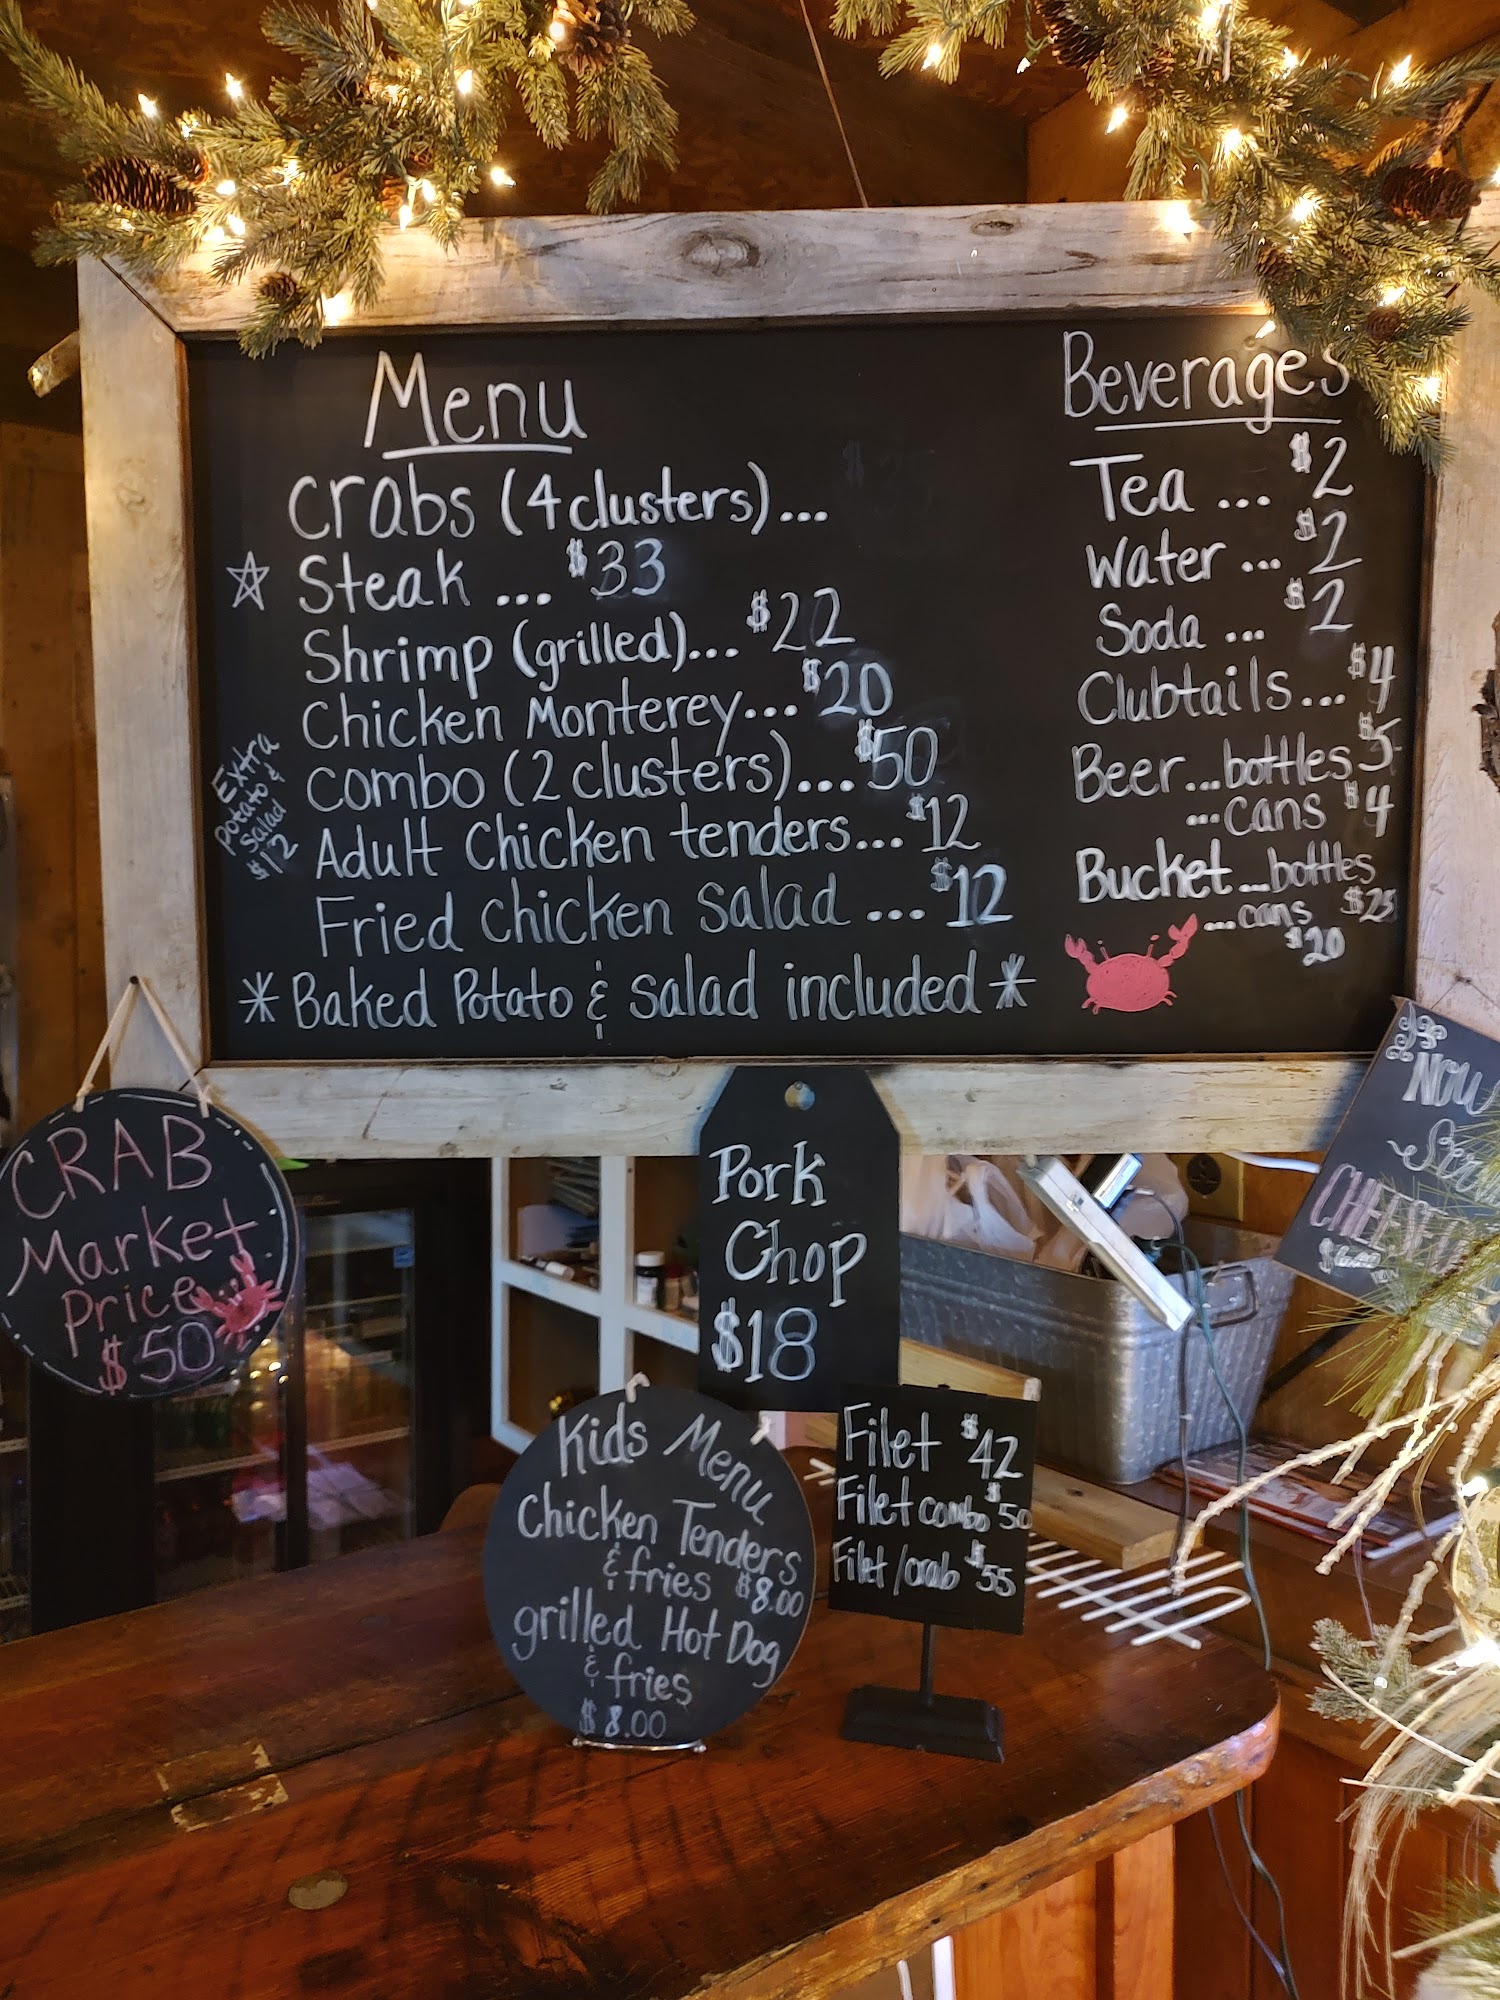 Menu
Crabs (4 clusters)...
Steak ... $33
Shrimp (grilled)... $22
Chicken Monterey... $20
Combo (2 clusters)... $50
Adult Chicken tenders... $12
Fried Chicken Salad ... $12
* Baked Potato & salad included *
Extra
potato &
Salad
$12
Beverages
Tea ... $2
Water ... $2
Soda ... $2
Clubtails... $4
Beer ...bottles $5
...cans $4
Bucket ...bottles
$25
...cans
$20
CRAB
Market
Price
$50
Pork
Chop
$18
NOW
Kids Menu
Chicken Tenders
& fries $8.00
grilled Hot Dog
& fries
$8.00
Filet $42
Filet combo $50
Filet/crab $55